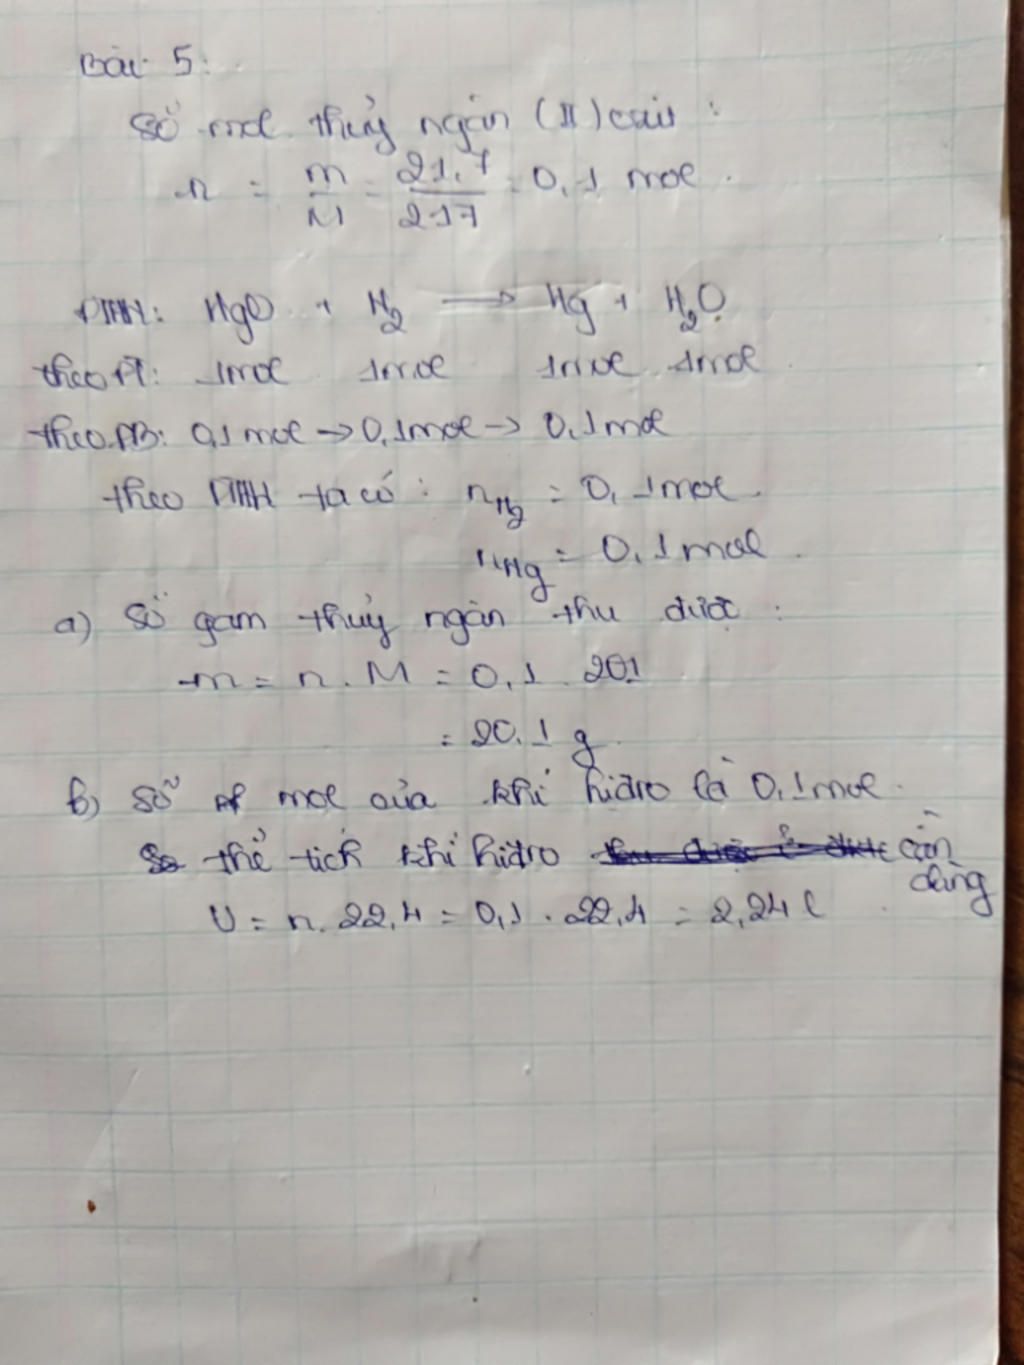 Bài 5:
Số mol thủy ngân (II) oxit:
n = m/M = 21,7/217 = 0,1 mol.
PTHH: HgO + H₂ → Hg + H₂O
theo PT: 1mol 1mol 1mol 1mol
theo ĐB: 0,1 mol → 0,1mol → 0,1mol
theo PTHH ta có: nH₂ = 0,1mol.
nHg = 0,1mol.
a) Số gam thủy ngân thu được:
m = n . M = 0,1 . 201
= 20,1 g
b) Số mol của khí hiđro là 0,1mol.
thể tích khí hiđro cần
dùng
V = n. 22,4 = 0,1 . 22,4 = 2,24 l